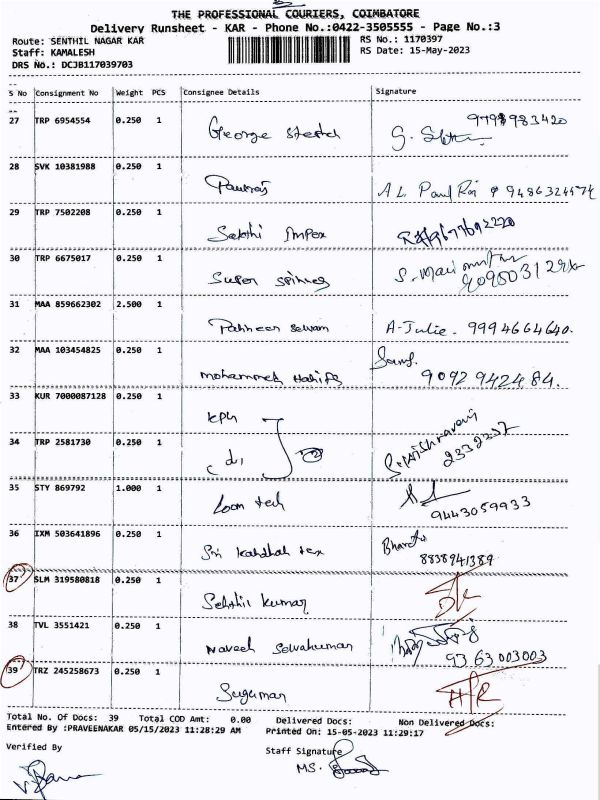 THE PROFESSIONAL COURIERS, COIMBATORE
Delivery Runsheet - KAR - Phone No.:0422-3505555 - Page No.:3
Route: SENTHIL NAGAR KAR
RS No.: 1170397
Staff: KAMALESH
RS Date: 15-May-2023
DRS No.: DCJB117039703
S No Consignment No Weight PCS Consignee Details Signature
27 TRP 6954554 0.250 1
George
28 SVK 10381988 0.250 1
Paulraj A L Paul Raj
29 TRP 7502208 0.250 1
Sakthi Impex
30 TRP 6675017 0.250 1
Super
31 MAA 859662302 2.500 1
A-Julie. 9994664640.
32 MAA 103454825 0.250 1
mohammed
9092 942484.
33 KUR 7000087128 0.250 1
kph
34 TRP 2581730 0.250 1
35 STY 869792 1.000 1
Loom tech 9443059933
36 IXM 503641896 0.250 1
Sri tex 8838941389
37 SLM 319580818 0.250 1
Senthil kumar
38 TVL 3551421 0.250 1
Naveen Selvakumar 9363003003
39 TRZ 245258673 0.250 1
Sugumar
Total No. Of Docs: 39 Total COD Amt: 0.00 Delivered Docs: Non Delivered Docs:
Entered By :PRAVEENAKAR 05/15/2023 11:28:29 AM Printed On: 15-05-2023 11:29:17
Verified By Staff Signature
MS.